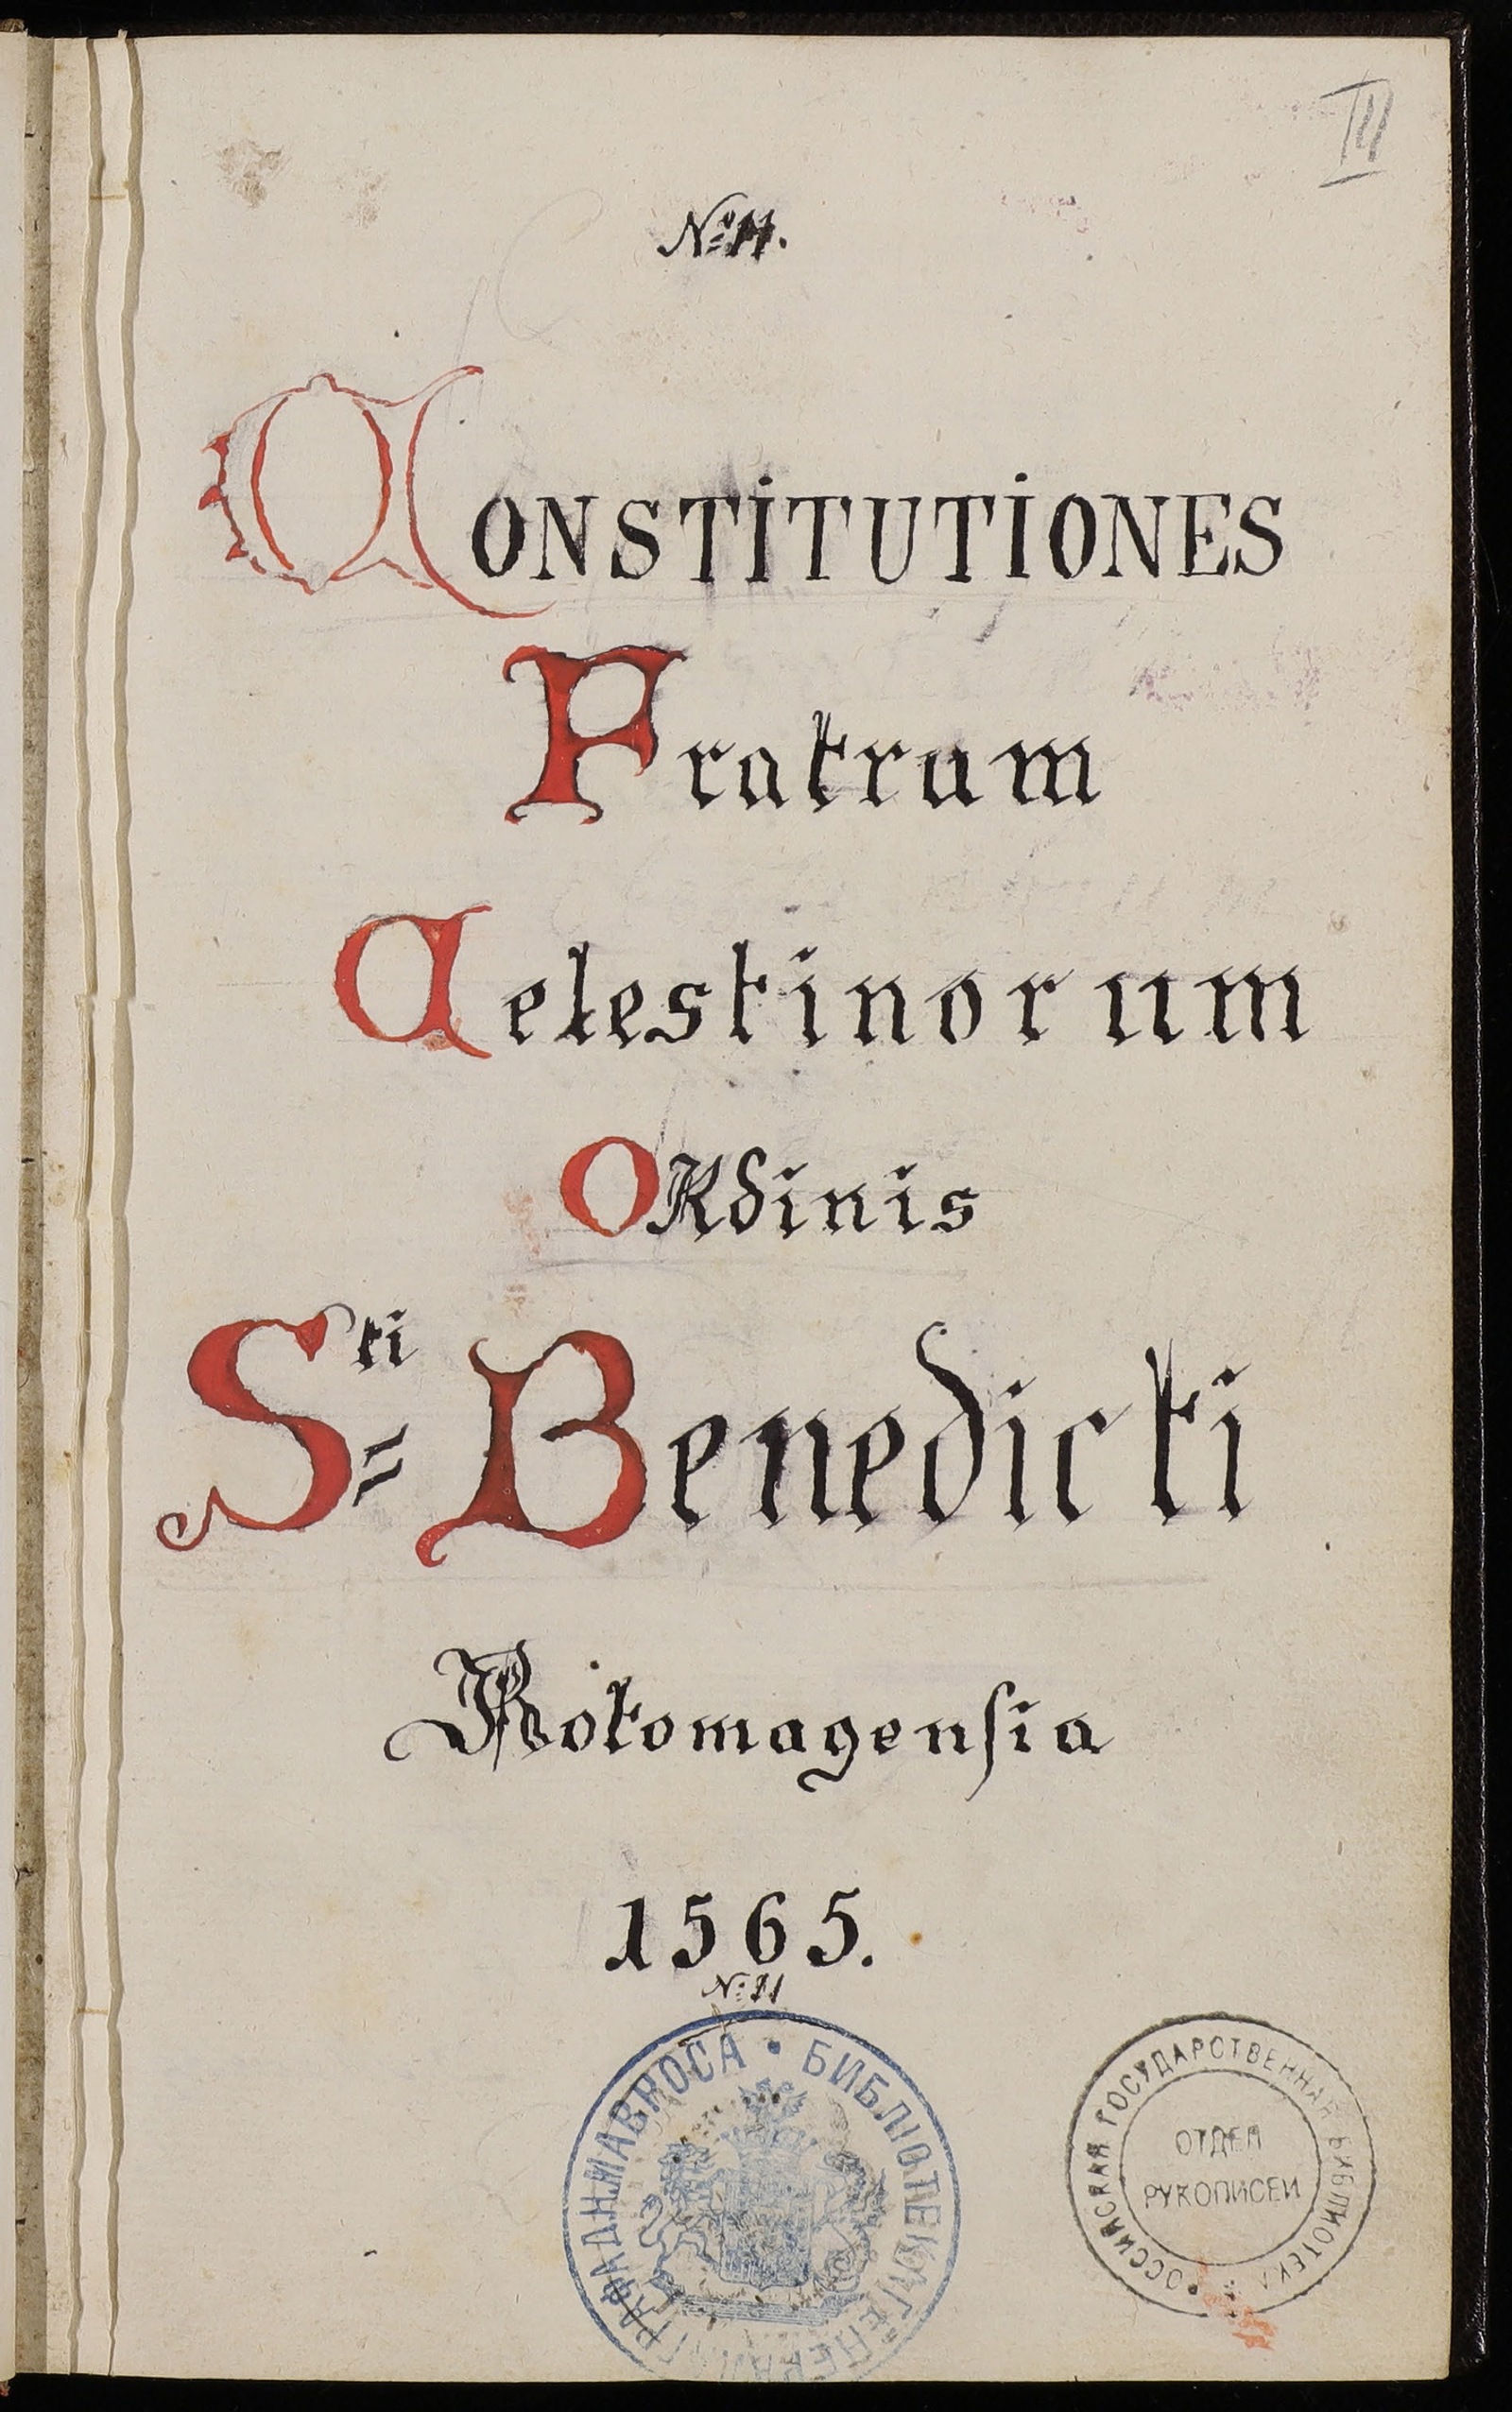 III
№ 11.
CONSTITUTIONES
Fratrum
Celestinorum
ORdinis
Sti= Benedicti
Rotomagensia
1565.
№ 11
БИБЛІОТЕКА ГЕНЕРАЛА ГРАФА Д.Н. МАВРОСА
РОССИЙСКАЯ ГОСУДАРСТВЕННАЯ БИБЛИОТЕКА
ОТДЕЛ
РУКОПИСЕЙ